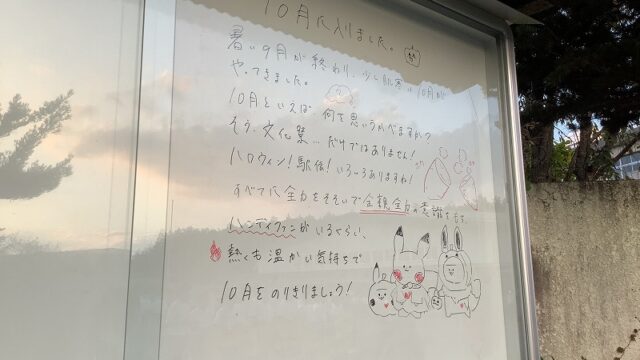 10月に入りました。
暑い9月が終わり、少し肌寒い10月が
やってきました。
10月といえば 何を思いうかべますか?
そう、文化祭… だけではありません!
ハロウィン! 駅伝! いろいろありますね!
すべてに全力をそそいで全競全力の意識をもち、
ハンディファンがいるくらい、
熱くも温かい気持ちで
10月をのりきりましょう!